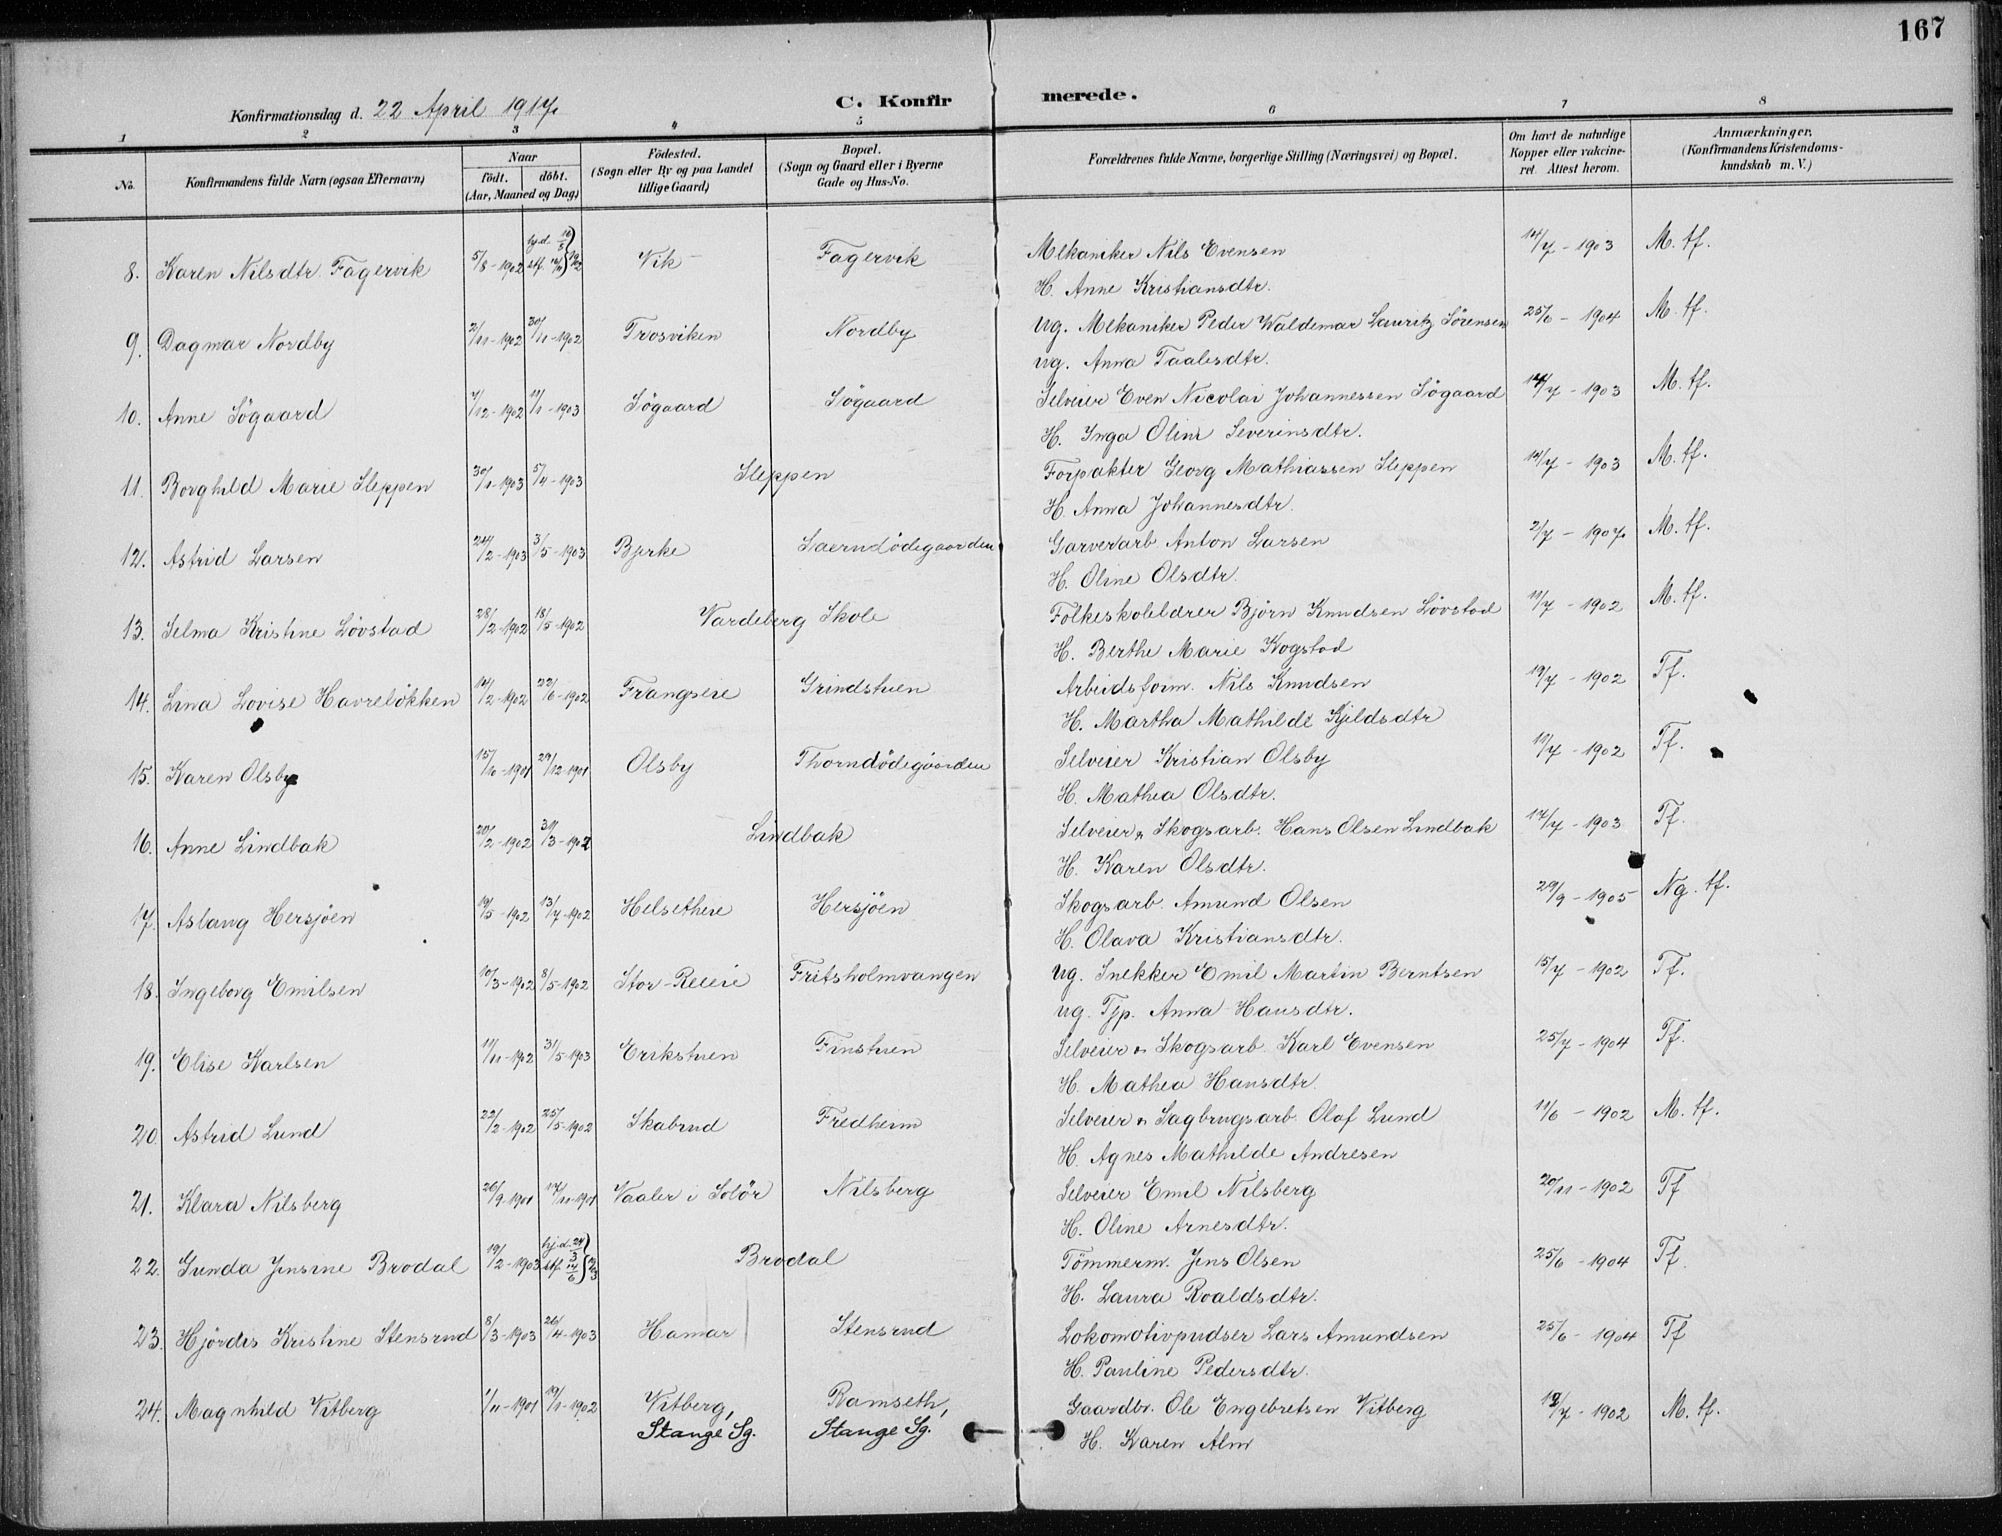 167
Konfirmationsdag d. 22 April 1917.
C. Konfir merede.
1 2 3 4 5 6 7 8
No. Konfirmandens fulde Navn (ogsaa Efternavn) Naar födt. döbt. (Aar, Maaned og Dag) Födested. (Sogn eller By og paa Landet tillige Gaard) Bopæl. (Sogn og Gaard eller i Byerne Gade og Hus-No. Forældrenes fulde Navne, borgerlige Stilling (Næringsvei) og Bopæl. Om havt de naturlige Kopper eller vakcineret. Attest herom. Anmærkninger, (Konfirmandens Kristendomskundskab m. V.)
8. Karen Nilsdtr. Fagervik 5/8-1902 hj.d. stf. Vik Fagervik Mekaniker Nils Evensen 14/7-1903 M. tf.
H. Anne Kristiansdtr.
9. Dagmar Nordby 2/11-1902 30/11-1902 Trosviken Nordby Ug. Mekaniker Peder Waldemar Lauritz Sörensen 25/6-1904 M. tf.
ug. Anna Taalesdtr.
10. Anne Sögaard 7/12-1902 11/1-1903 Sögaard Sögaard Selveier Even Nicolai Johannessen Sögaard 14/7-1903 M. tf.
H. Inga Oline Severinsdtr.
11. Borghild Marie Sleppen 30/1-1903 5/4-1903 Sleppen Forpakter Georg Mathiassen Sleppen 14/7-1903 M. tf.
H. Anna Johannesdtr.
12. Astrid Larsen 24/2-1903 3/5-1903 Bjerke Saerndödegaarden Garverarb. Anton Larsen 2/7-1907. M. tf.
H. Oline Olsdtr.
13. Selma Kristine Lövstad 28/2-1902 18/5-1902 Vardeberg Skole Folkeskolelærer Björn Knudsen Lövstad 11/7-1902 M. tf.
H. Berthe Marie Kogstad
14. Lina Lovise Havrelökken 14/2-1902 22/6-1902 Frangseie Grindstuen Arbeidsform. Nils Knudsen 19/7-1902 Tf.
H. Martha Mathilde Kjeldsdtr
15. Karen Olsby 15/10-1901 29/12-1901 Olsby Thorndödegaarden Selveier Kristian Olsby 19/7-1902 Tf.
H. Mathea Olsdtr.
16. Anne Lindbak 20/2-1902 31/3-1902 Lindbak Selveier & Skogsarb. Hans Olsen Lindbak 14/7-1903 Tf.
H. Karen Olsdtr.
17. Aslaug Hersjöen 19/5-1902 13/7-1902 Helsetheie Hersjöen Skogsarb. Amund Olsen 29/9-1905 Ng. tf.
H. Olava Kristiansdtr.
18. Ingeborg Emilsen 10/3-1902 8/5-1902 Stor-Reeie Fritsholmvangen Ug. Snekker Emil Martin Berntsen 15/7-1902 Tf.
ug. Tjp. Anna Hansdtr.
19. Elise Karlsen 11/11-1902 31/5-1903 Erikstuen Finstuen Selveier & Skogsarb. Karl Evensen 25/7-1904 Tf.
H. Mathea Hansdtr.
20 Astrid Lund 22/2-1902 25/5-1902 Skabrud Fredheim Selveier & Sagbrugsarb. Olaf Lund 11/6-1902 M. tf.
H. Agnes Mathilde Andresen
21. Klara Nilsberg 26/9-1901 17/11-1901 Vaaler i Solör Nilsberg Selveier Emil Nilsberg 20/11-1902 Tf
H. Oline Arnesdtr.
22. Gunda Jensine Brodal 19/2-1903 hj.d. 24/3 stf. 14/6 Brodal Tömmerm. Jens Olsen 25/6-1904 Tf.
H. Laura Roaldsdtr.
23. Hjördis Kristine Stensrud 8/3-1903 26/4-1903 Hamar Stensrud Lokomotivpudser Lars Amundsen 25/6-1904 Tf
H. Pauline Pedersdtr.
24. Magnhild Vitberg 1/11-1901 19/1-1902 Vitberg, Ramseth, Gaardbr. Ole Engebretsen Vitberg 19/7-1902 M. tf.
Stange Sg. Stange Sg. H. Karen Alm